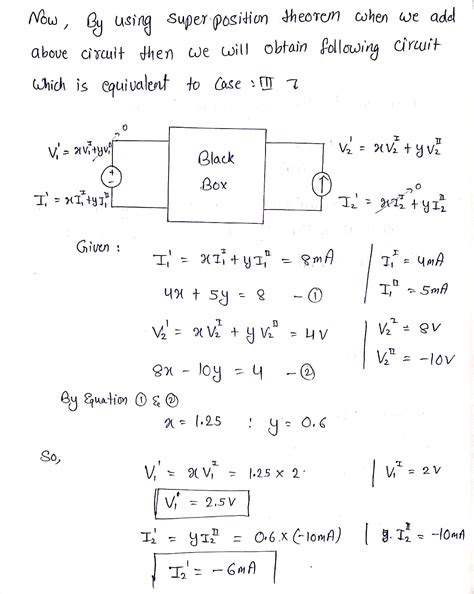 Now, By using super position theorem when we add
above circuit then we will obtain following circuit
which is equivalent to Case : III
V₁' = xV₁ᴵ + yV₁ᴵᴵ 0
V₂' = xV₂ᴵ + yV₂ᴵᴵ
Black
Box
I₁' = xI₁ᴵ + yI₁ᴵᴵ
I₂' = xI₂ᴵ 0 + yI₂ᴵᴵ
Given :
I₁' = xI₁ᴵ + yI₁ᴵᴵ = 8mA | I₁ᴵ = 4mA
4x + 5y = 8 - ① | I₁ᴵᴵ = 5mA
V₂' = xV₂ᴵ + yV₂ᴵᴵ = 4V | V₂² = 8V
8x - 10y = 4 - ② | V₂ᴵᴵ = -10V
By Equation ① & ②
x = 1.25 : y = 0.6
So,
V₁' = xV₁ᴵ = 1.25 × 2 | V₁ᴵ = 2V
V₁' = 2.5V
I₂' = yI₂ᴵᴵ = 0.6 × (-10mA) | y. I₂ᴵᴵ = -10mA
I₂' = -6mA